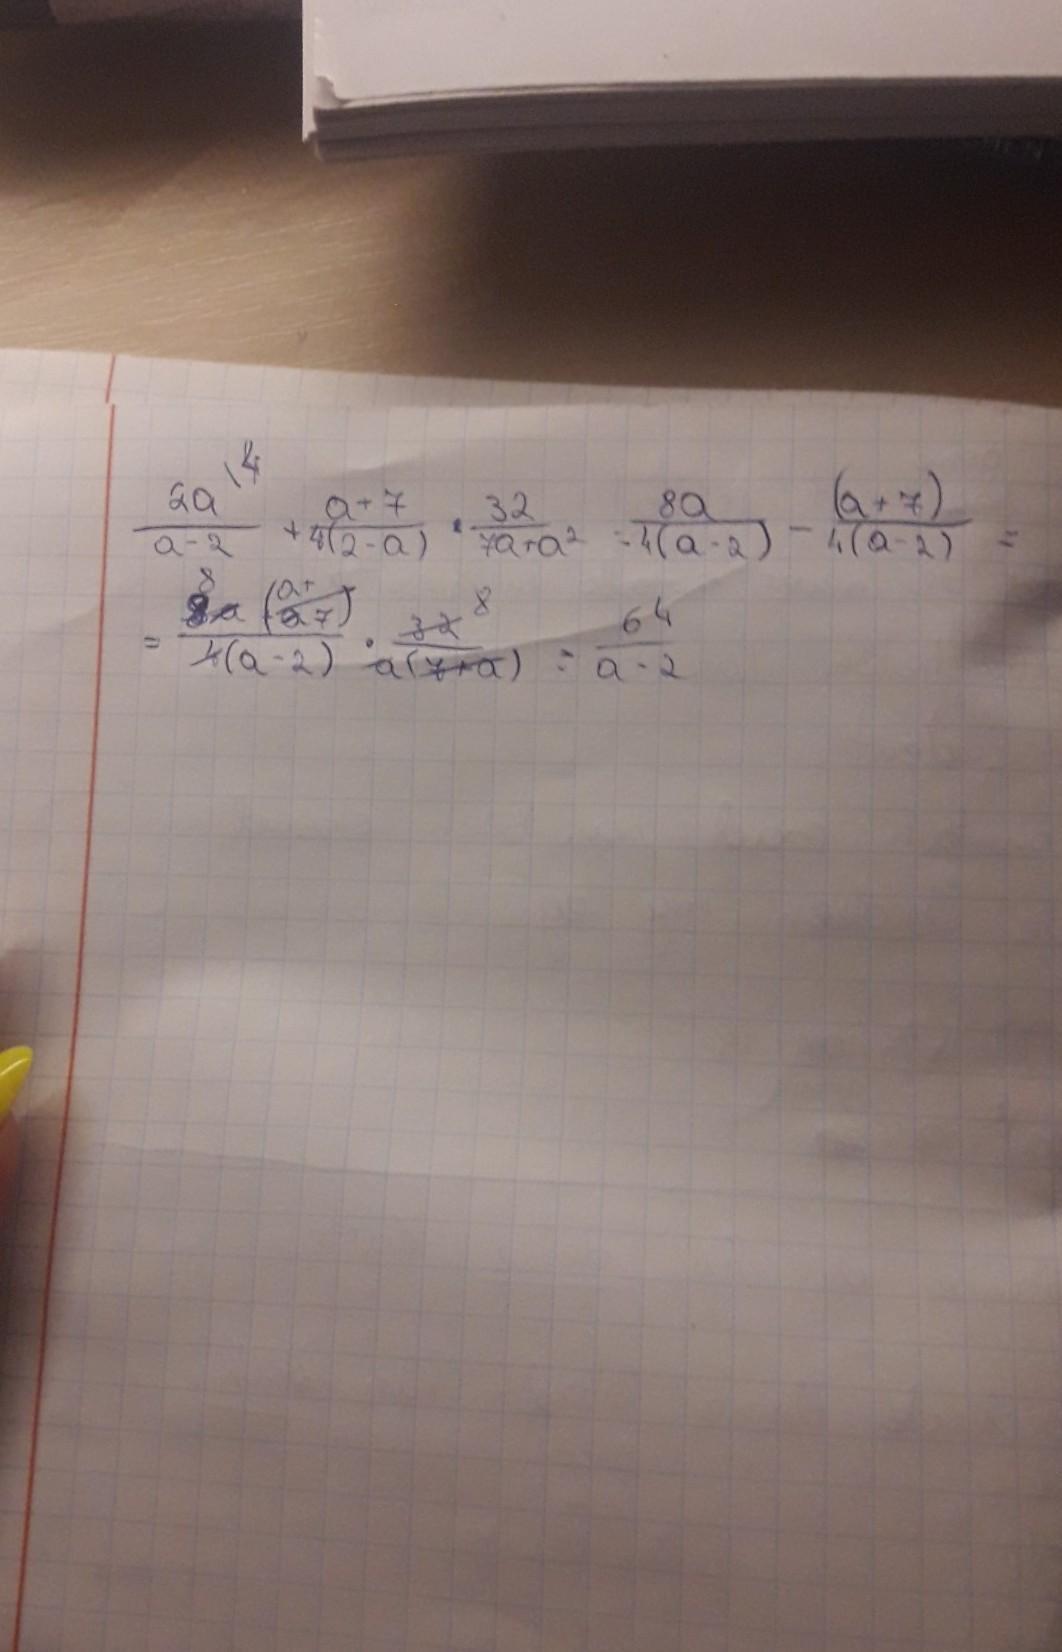 2a\4/(a-2) + (a+7)/(4(2-a)) · 32/(7a+a²) = 8a/(4(a-2)) - (a+7)/(4(a-2)) =
= 8 8a (a+ a7)/(4(a-2)) · 32 8/(a(7+a)) = 64/(a-2)